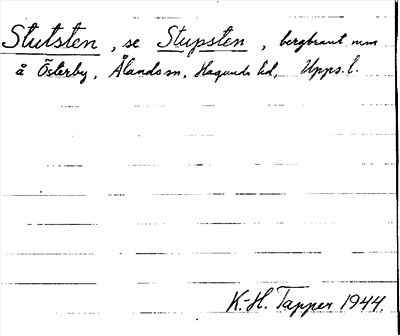 Stutsten, se Stupsten, bergbrant mm
å Österby, Ålands sn, Hagunda hd, Upps. l.
K.-H. Tapper 1944.